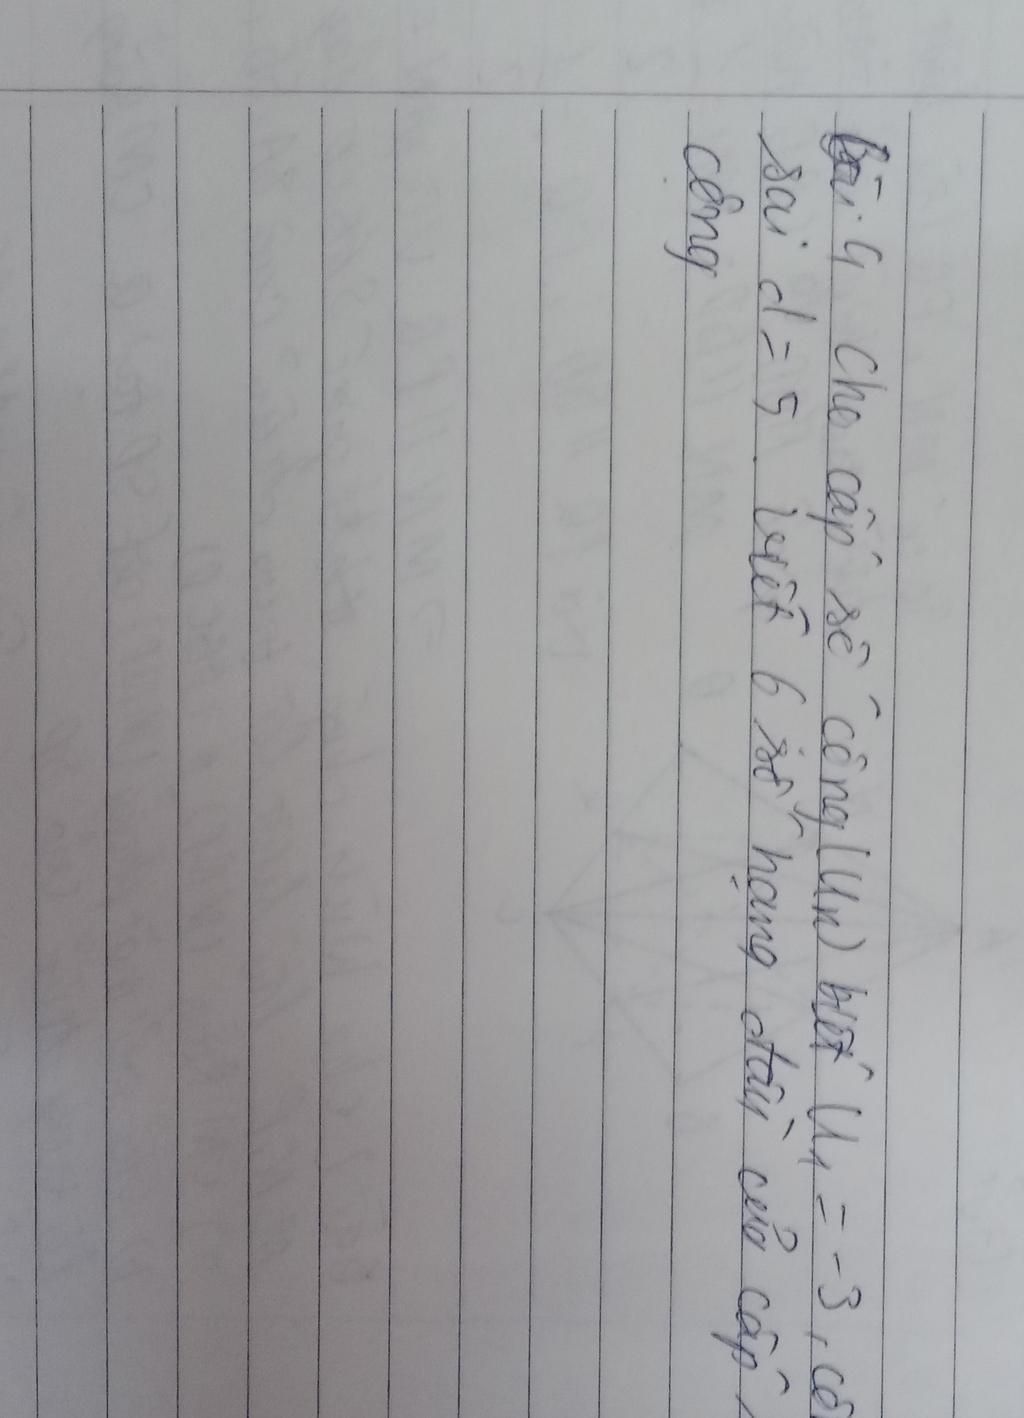 Bài 4 Cho cấp số cộng (Un) biết U1 = -3, cô
sai d = 5. Viết 6 số hạng đầu của cấp
công